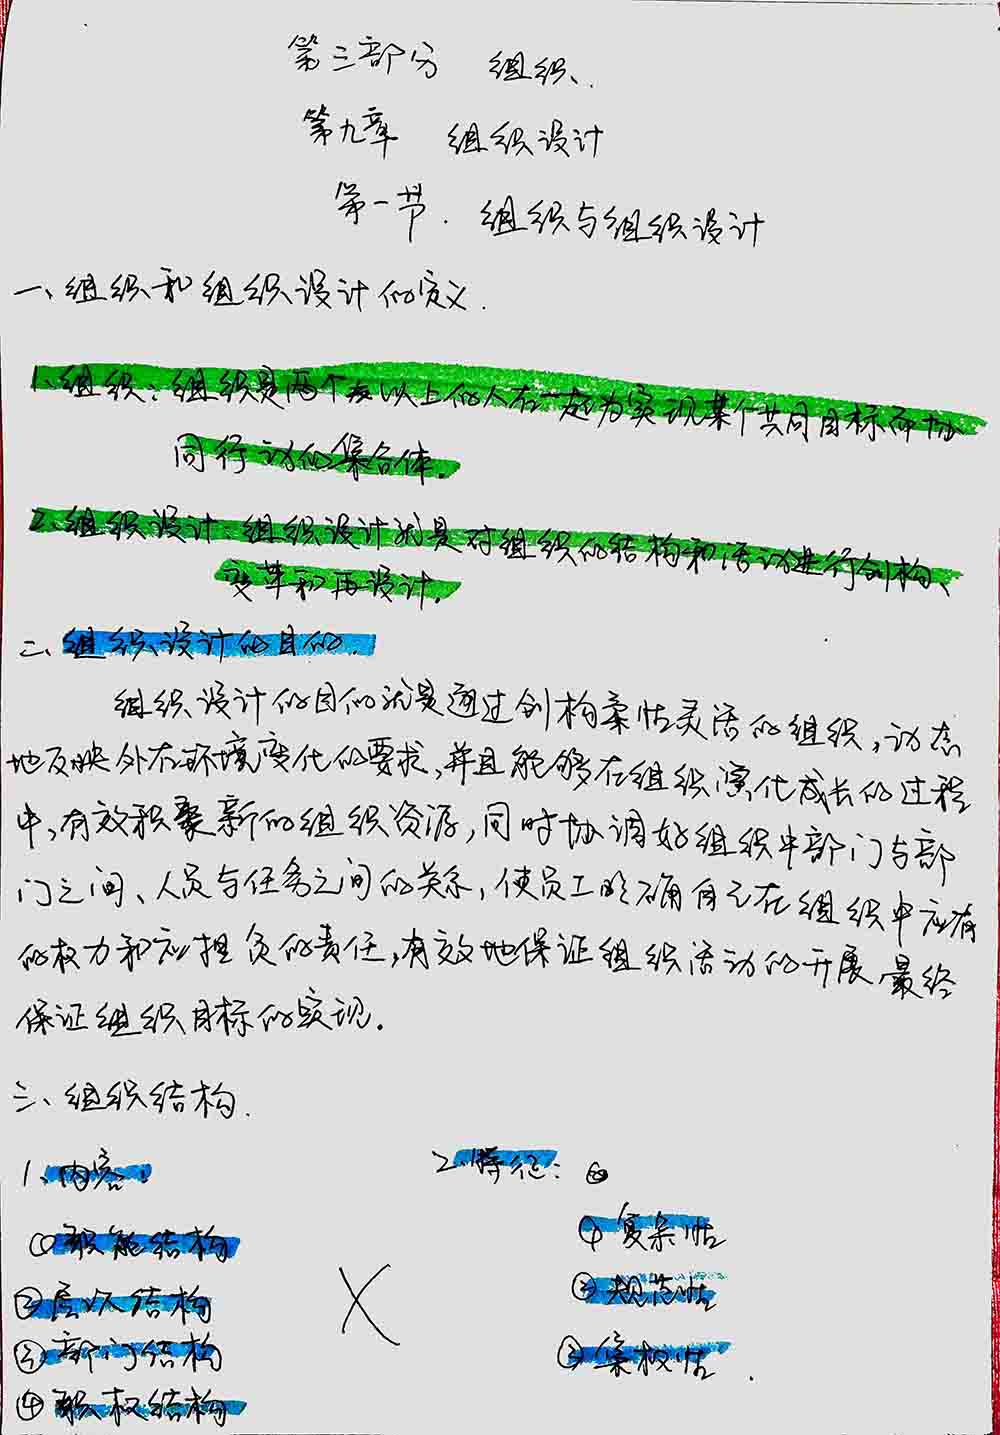 第三部分 组织、
第九章 组织设计
第一节. 组织与组织设计
一、组织和组织设计的定义.
1、组织：组织是两个或以上的人在一起为实现某个共同目标而协
同行动的集合体.
2、组织设计：组织设计就是对组织的结构和活动进行创构、
变革和再设计.
二、组织设计的目的.
组织设计的目的就是通过创构柔性灵活的组织，动态
地反映外在环境变化的要求，并且能够在组织演化成长的过程
中，有效积聚新的组织资源，同时协调好组织中部门与部
门之间、人员与任务之间的关系，使员工明确自己在组织中应有
的权力和应担负的责任，有效地保证组织活动的开展，最终
保证组织目标的实现.
三、组织结构.
1、内容：
2、特征：
①职能结构
①复杂性
②层次结构
②规范性
③部门结构
③集权性.
④职权结构